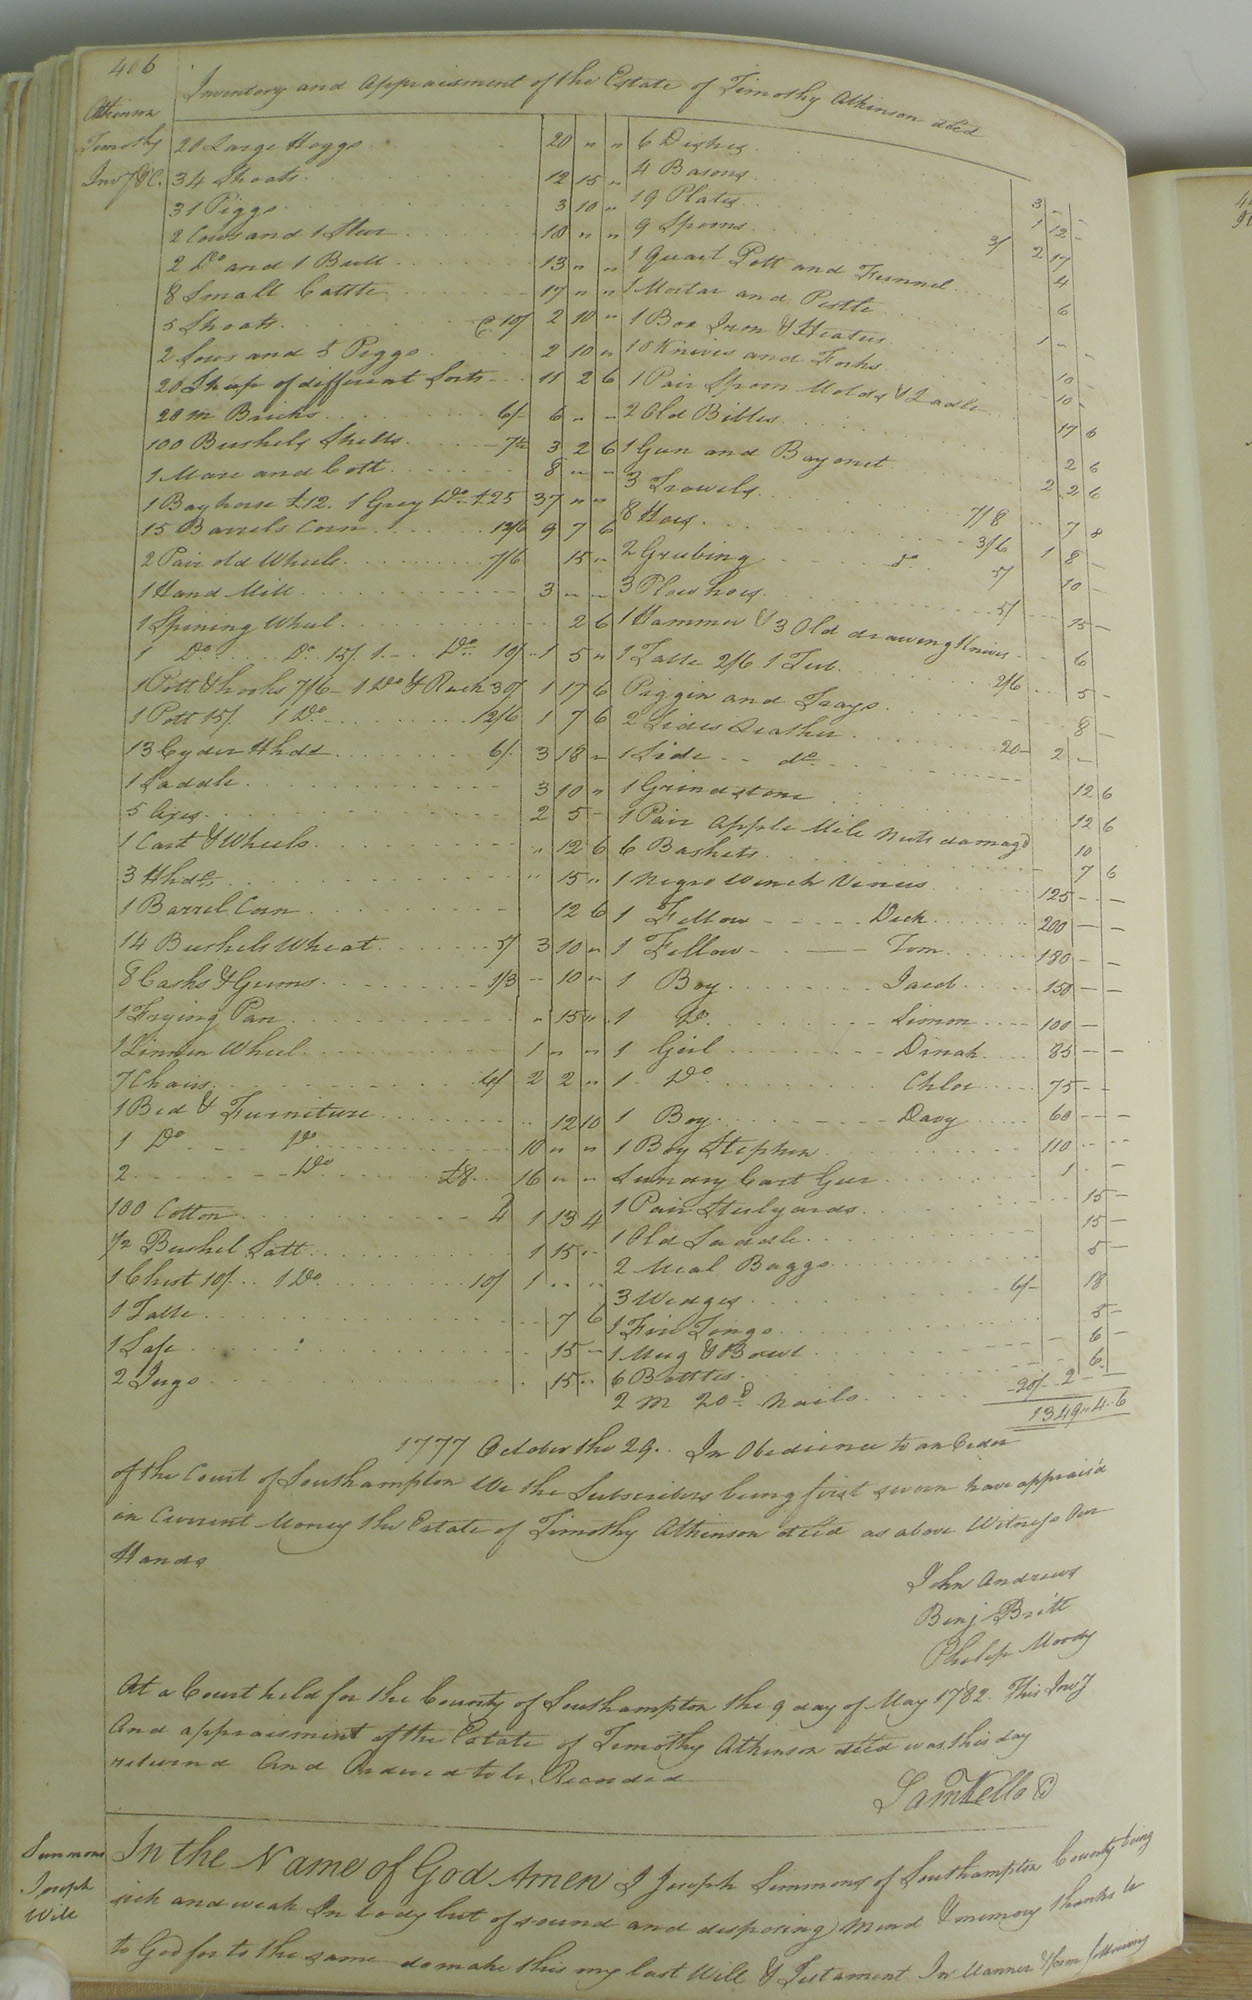 406
Inventory and Appraisment of the Estate of Timothy Atkinson decd
Atkinson
Timothy
Invy &C.
20 Large Hoggs 20 " "
34 Shoats 12 15 "
31 Piggs 3 10 "
2 Cows and 1 Steer 18 " "
2 Do and 1 Bull 13 " "
8 Small Cattle 17 " "
5 Shoats @ 10/ 2 10 "
2 Sows and 5 Piggs 2 10 "
20 Sheep of different Sorts 11 2 6
20 m Bricks 6/ 6 " "
100 Bushels Shells 7½ 3 2 6
1 Mare and Colt 8 " "
1 Bay horse £12. 1 Grey Do £25 37 " "
15 Barrels Corn 12/6 9 7 6
2 Pair old Wheels 7/6 15 "
1 Hand Mill 3 " "
1 Spining Wheel 2 6
1 Do Do 15/ 1 Do 10/ 1 5 "
1 Pott & hooks 7/6 1 Do & Rack 30/ 1 17 6
1 Pott 15/ 1 Do 12/6 1 7 6
13 Cyder Hhds 6/ 3 18 "
1 Saddle 3 10 "
5 Axes 2 5 -
1 Cart & Wheels " 12 6
3 Hhds " 15 "
1 Barrel Corn 12 6
14 Bushels Wheat 5/ 3 10 "
8 Casks & Gums 1/3 - 10 "
1 Frying Pan " 15 "
1 Linnen Wheel 1 " "
7 Chairs 6/ 2 2 "
1 Bed & Furniture 12 10
1 Do Do 10 " "
2 Do £8 16 " "
100 Cotton 4 1 13 4
1/2 Bushel Salt 1 15 "
1 Chest 10/ 1 Do 10/ 1 " "
1 Table 7 6
1 Safe 15 -
2 Jugs 15 "
6 Dishes 3 - -
4 Basons 1 12 -
19 Plates 3/ 2 17
9 Spoons 4
1 Quart Pott and Funnel 6
1 Mortar and Pestle 1 - -
1 Box Iron & Heaters 10 -
18 Knives and Forks 10 -
1 Pair Spoon Molds & Ladle 17 6
2 Old Bibles 2 6
1 Gun and Bayonet 2 2 6
3 Trowels 7/8 7 8
8 Hoes 3/6 1 8 -
2 Grubing do 5/ 10 -
3 Plow hoes 5/ 15 -
1 Hammer & 3 Old drawing Knives 6
1 Table 2/6 1 Tub 2/6 5 -
Piggin and Trays 8 -
2 Sides Leather 20- 2 -
1 Side do 12 6
1 Grindstone 12 6
1 Pair Apple Mile Nuts damagd 10
6 Baskets 7 6
1 Negro Wench Venus 125 - -
1 Fellow Dick 200 - -
1 Fellow Tom 180 - -
1 Boy Jacob 150 - -
1 Do Simon 100 -
1 Girl Dinah 85 - -
1 Do Chloe 75 - -
1 Boy Davy 60 - -
1 Boy Stephen 110 - -
Sundry Cart Geer 1 - -
1 Pair Stilyards 15 -
1 Old Saddle 15 -
2 Meal Baggs 5 -
3 Wedges 6/ 18
1 Fire Tongs 5 -
1 Mug & Bowl 6 -
6 Bottles 6
2 m 20d Nails 20/ 2 - -
1349 " 4 " 6
1777 October the 29. In Obedience to an Order
of the Court of Southampton We the Subscribers being first sworn have apprais'd
in Current Money the Estate of Timothy Atkinson decd as above Witness Our
Hands
John Andrews
Benj Britt
Philip Moody
At a Court held for the County of Southampton the 9 day of May 1782. This Invy
And appraisment of the Estate of Timothy Atkinson decd was this day
returnd And Orderd to be Recorded
Saml Kello C
Simmons
Joseph
Will
In the Name of God Amen I Joseph Simmons of Southampton County being
sick and weak In body but of sound and disposing Mind & memory thanks be
to God for to the same do make this my last Will & Testament In Manner & form following